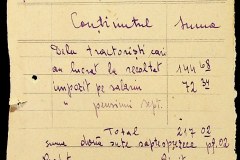 Conținutul Suma
Dela tractoriști cari
au lucrat la recoltat 144 68
impozit pe salarii 72 34
" pensiuni sept.
Total 217 02
suma două sute șaptesprezece